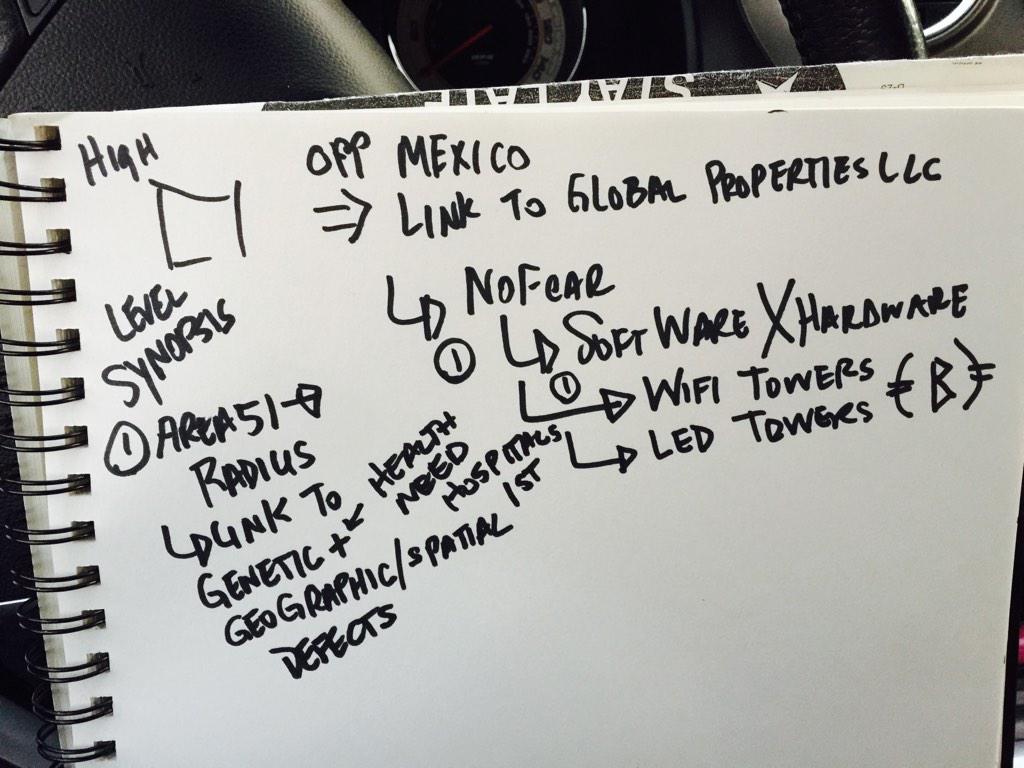 STAY LATE
HIGH
LEVEL
SYNOPSIS
① AREA 51
RADIUS
LINK TO
GENETIC +
GEOGRAPHIC/SPATIAL
DEFECTS
HEALTH
NEED
HOSPITALS
1ST
OFF MEXICO
⇒ LINK TO GLOBAL PROPERTIES LLC
NOFEAR
①
SOFTWARE X HARDWARE
① WIFI TOWERS
LED TOWERS
B